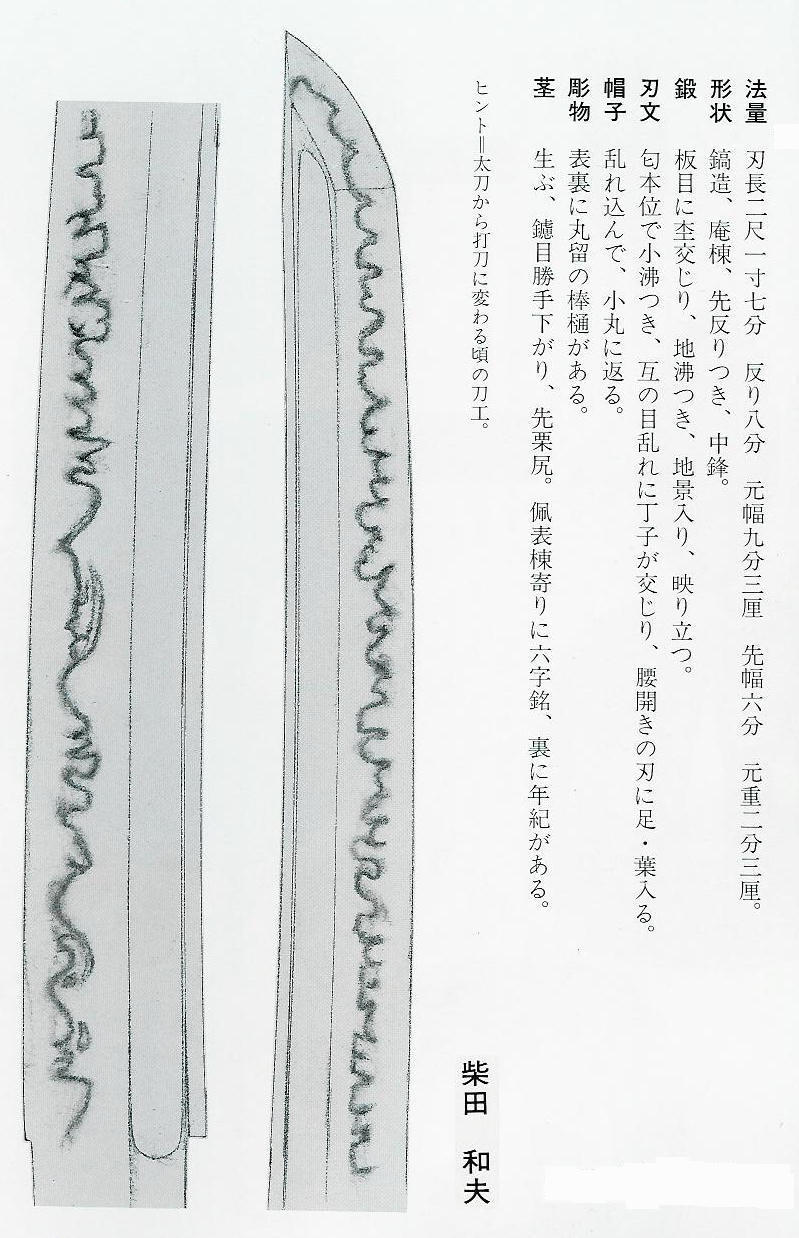 法量　刃長二尺一寸七分　反り八分　元幅九分三厘　先幅六分　元重二分三厘。
形状　鎬造、庵棟、先反りつき、中鋒。
鍛　板目に杢交じり、地沸つき、地景入り、映り立つ。
刃文　匂本位で小沸つき、互の目乱れに丁子が交じり、腰開きの刃に足・葉入る。
帽子　乱れ込んで、小丸に返る。
彫物　表裏に丸留の棒樋がある。
茎　生ぶ、鑢目勝手下がり、先栗尻。佩表棟寄りに六字銘、裏に年紀がある。
ヒント＝太刀から打刀に変わる頃の刀工。
柴田　和夫